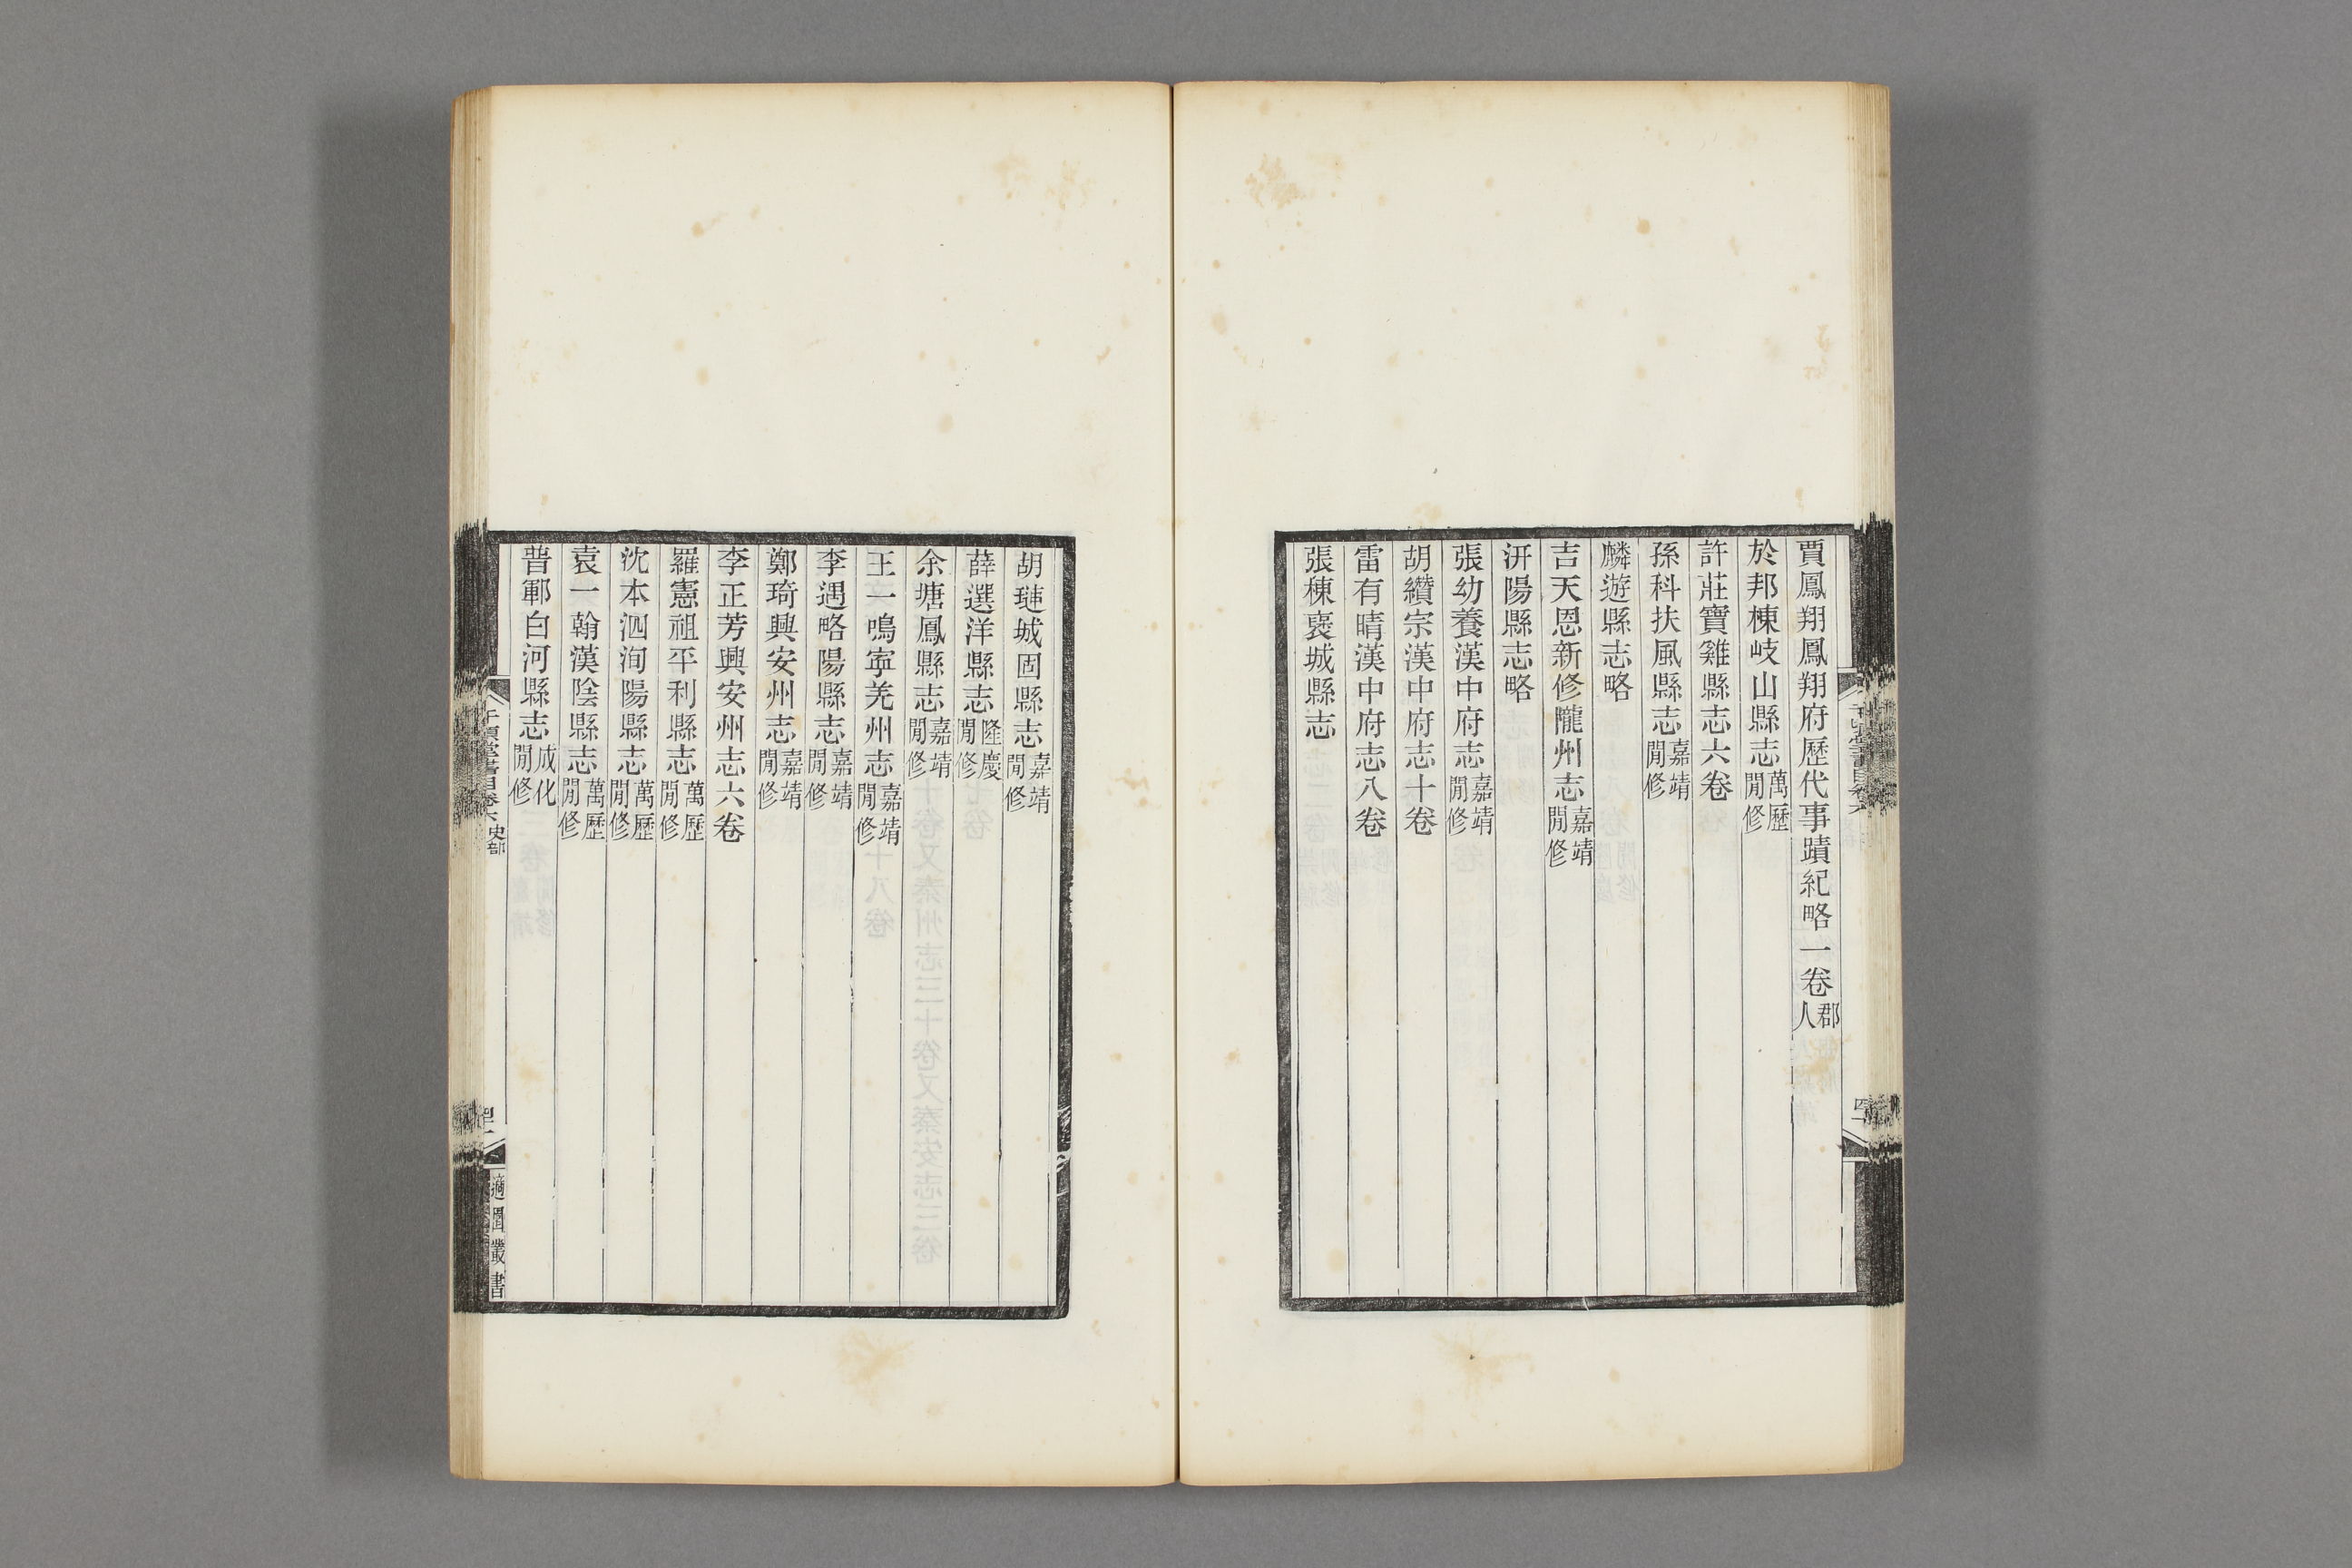 賈鳳翔鳳翔府歷代事蹟紀略一卷郡人
於邦棟岐山縣志萬歷閒修
許莊寶雞縣志六卷
孫科扶風縣志嘉靖閒修
麟遊縣志略
吉天恩新修隴州志嘉靖閒修
汧陽縣志略
張幼養漢中府志嘉靖閒修
胡纘宗漢中府志十卷
雷有晴漢中府志八卷
張棟襃城縣志
胡璉城固縣志嘉靖閒修
薛選洋縣志隆慶閒修
余塘鳳縣志嘉靖閒修
王一鳴寧羌州志嘉靖閒修
李遇略陽縣志嘉靖閒修
鄭琦興安州志嘉靖閒修
李正芳興安州志六卷
羅憲祖平利縣志萬歷閒修
沈本泗洵陽縣志萬歷閒修
袁一翰漢陰縣志萬歷閒修
普鄆白河縣志成化閒修
千頃堂書目卷六 史部
適園叢書